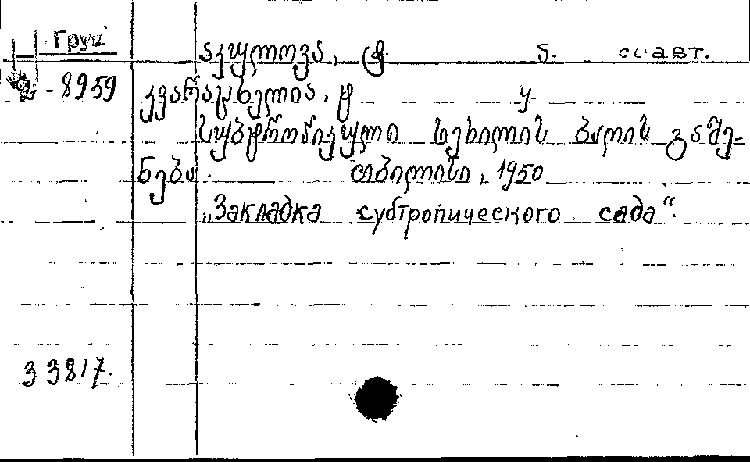 Груз
აკულოვა, ფ. Б. соавт.
-8959 კვარაცხელია, ტ. უ
სუბტროპიკული ხეხილის ბაღის გაშე-
ნება. თბილისი, 1950
„Закладка субтропического сада“.
33817.